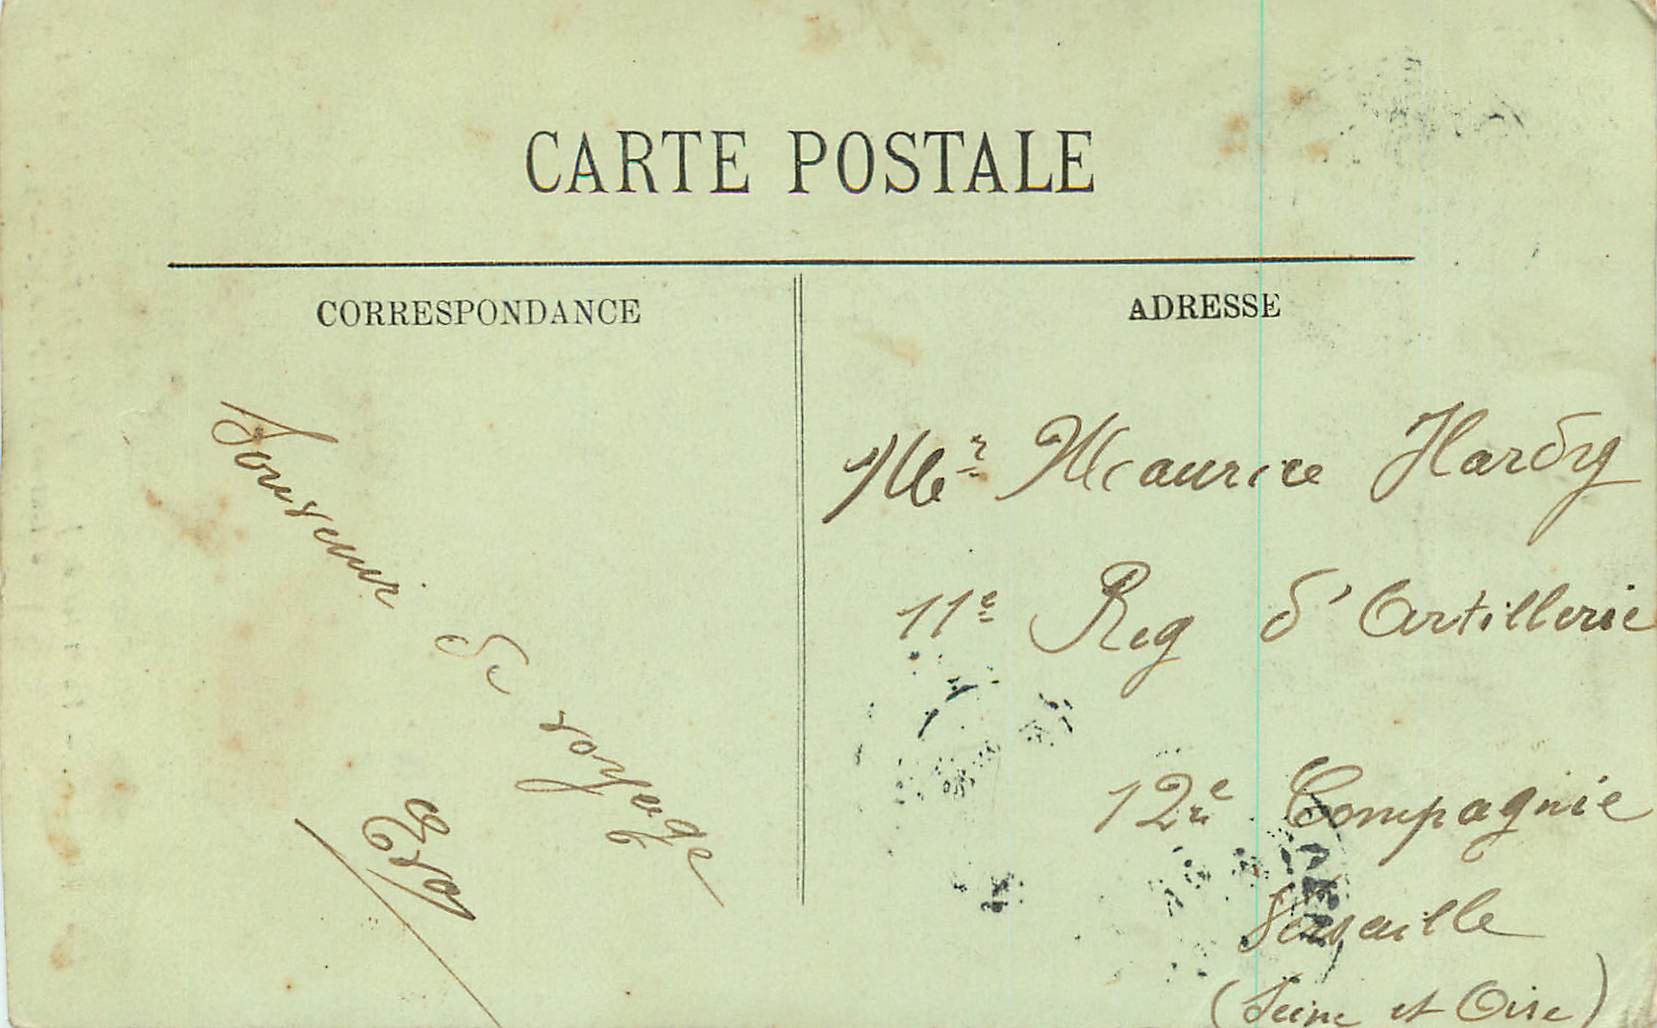 CARTE POSTALE
CORRESPONDANCE
Souvenir de voyage
ADRESSE
Mr Maurice Hardy
11e Reg d'Artillerie
12e Compagnie
Versaille
(Seine et Oise)